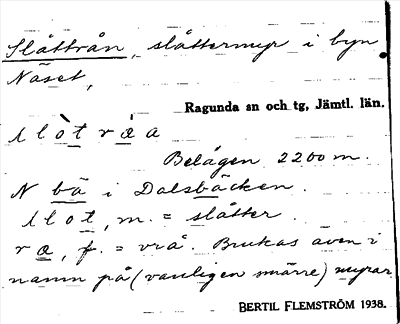 Slåttrån, slåttermyr i byn
Näset,
Ragunda sn och tg, Jämtl. län.
slòtrǽa
Belägen 2200 m.
N bä i Dalsbäcken.
slot, m. = slåtter.
ræ, f. = vrå. Brukas även i
namn på (vanligen smärre) myrar
BERTIL FLEMSTRÖM 1938.